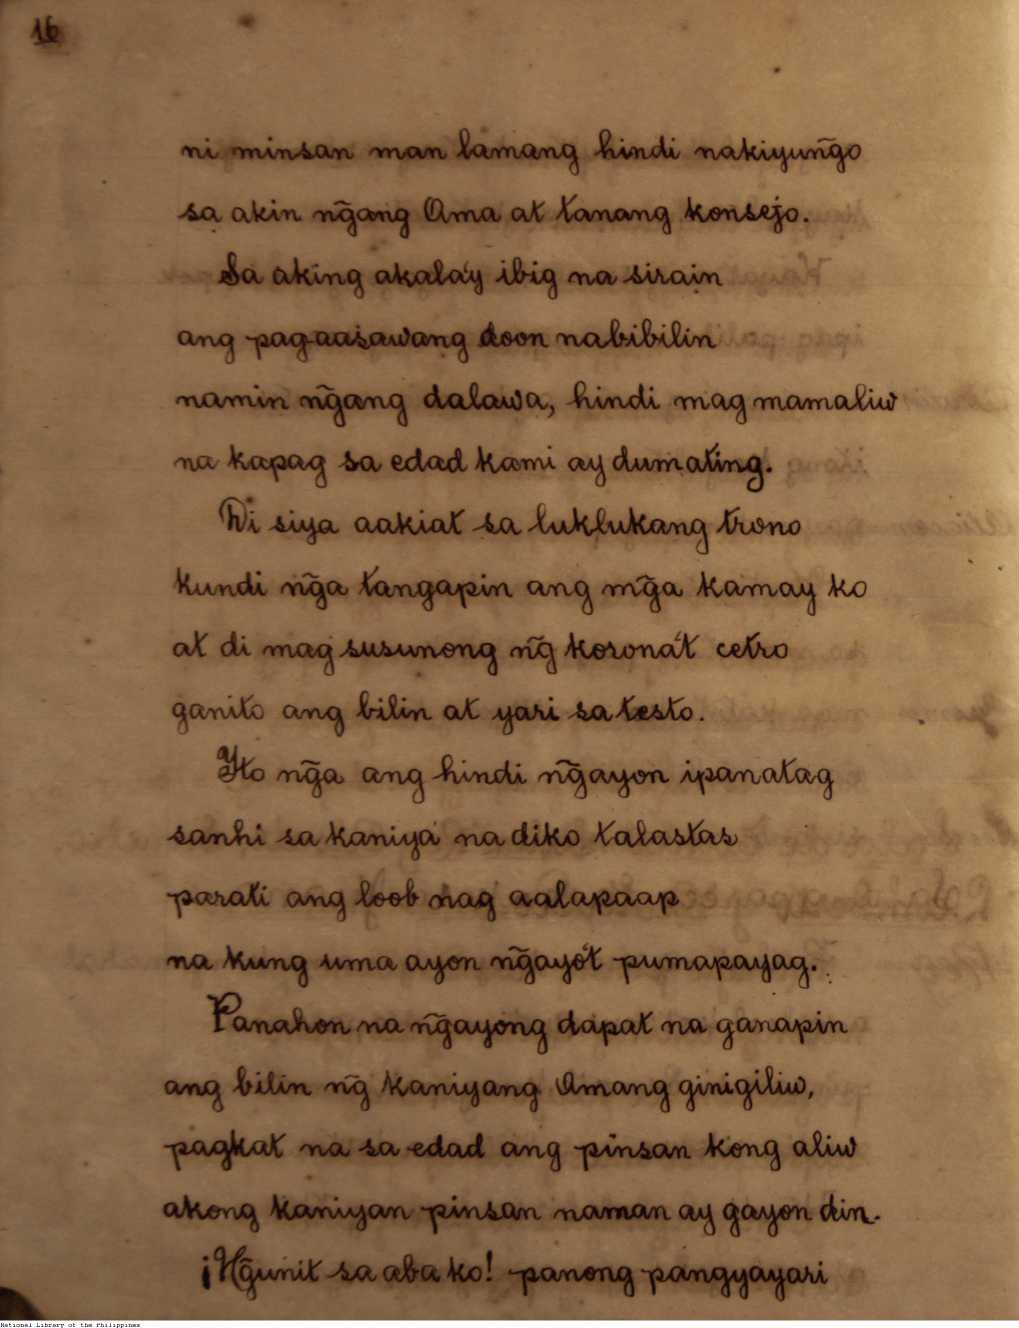 16
ni minsan man lamang hindi nakiyun̄go
sa akin n̄gang Ama at tanang konsejo.
Sa aking akala'y ibig na sirain
ang pag aasawang doon nabibilin
namin n̄gang dalawa, hindi mag mamaliw
na kapag sa edad kami ay dumating.
Di siya aakiat sa luklukang trono
kundi n̄ga tangapin ang m̄ga kamay ko
at di mag susunong n̄g korona't cetro
ganito ang bilin at yari sa testo.
Yto n̄ga ang hindi n̄gayon ipanatag
sanhi sa kaniya na diko talastas
parati ang loob nag aalapaap
na kung uma ayon n̄gayo't pumapayag.
Panahon na n̄gayong dapat na ganapin
ang bilin n̄g kaniyang Amang ginigiliw,
pagkat na sa edad ang pinsan kong aliw
akong kaniyan pinsan naman ay gayon din.
¡N̄gunit sa aba ko! panong pangyayari
National Library of the Philippines